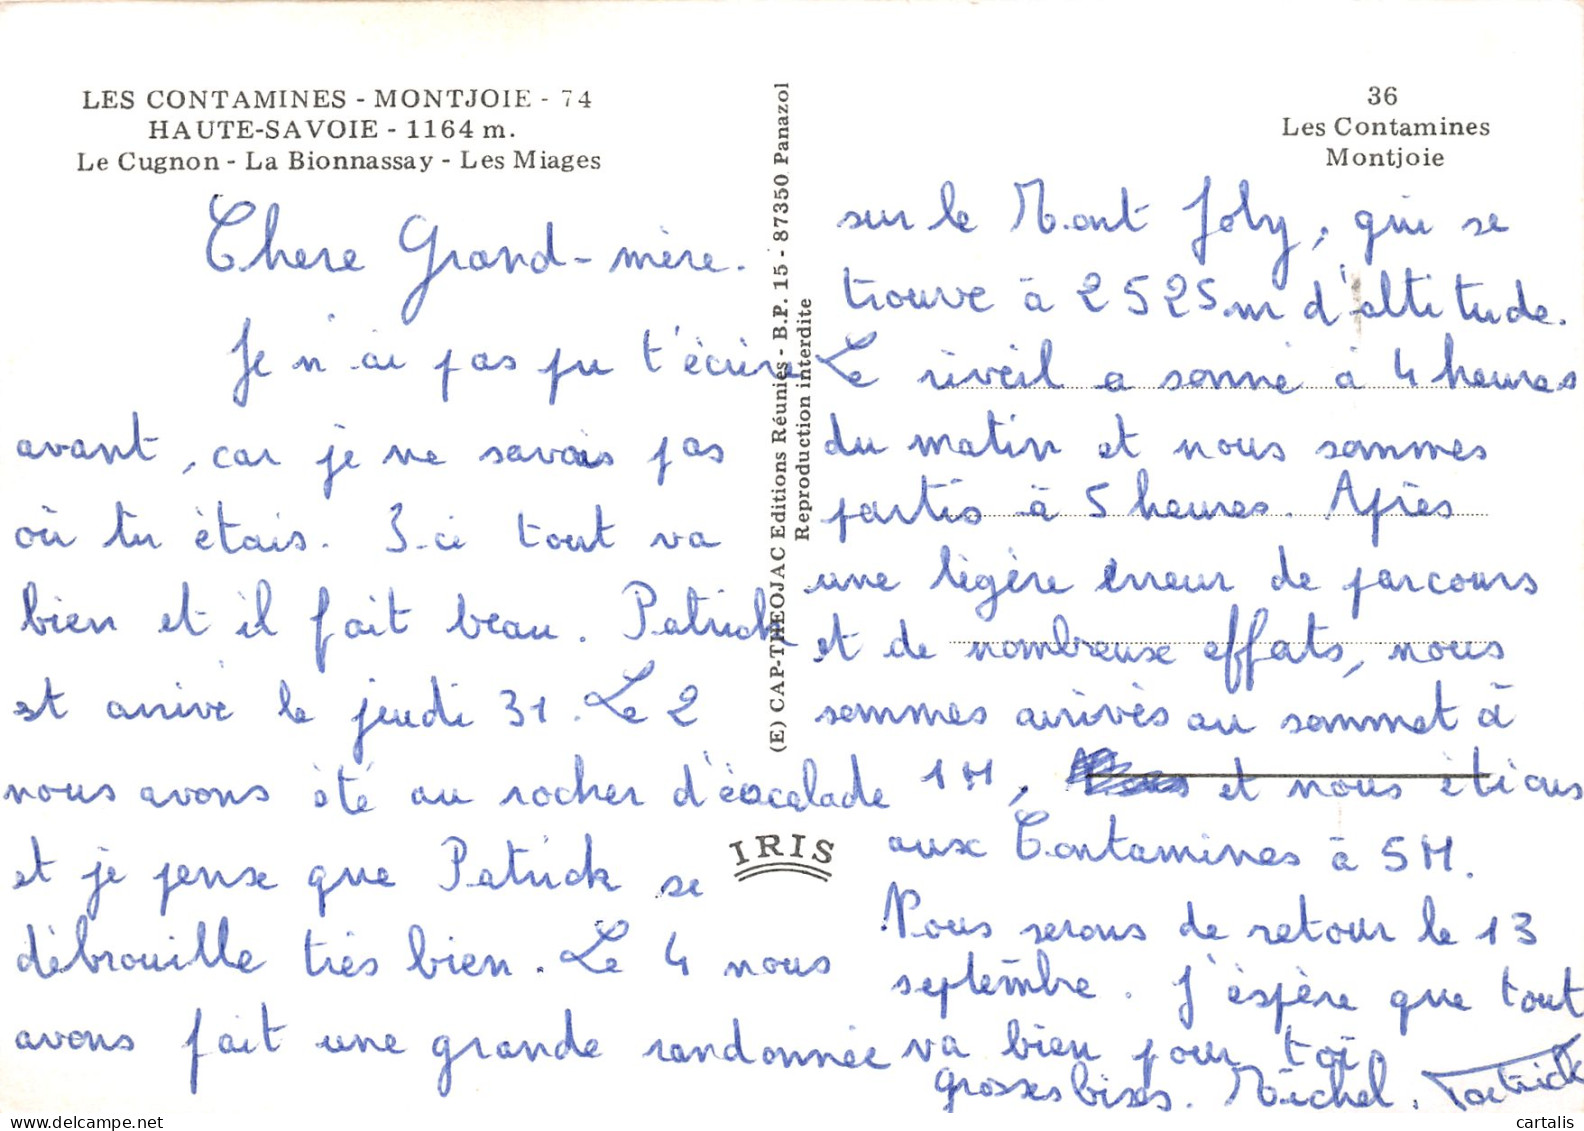 LES CONTAMINES - MONTJOIE - 74
HAUTE-SAVOIE - 1164 m.
Le Cugnon - La Bionnassay - Les Miages
Chere Grand-mère.
Je n'ai pas pu t'écrire
avant, car je ne savais pas
où tu étais. Ici tout va
bien et il fait beau. Patrick
est arrivé le jeudi 31. Le 2
nous avons été au rocher d'éscalade
et je pense que Patrick se
débrouille très bien. Le 4 nous
avons fait une grande randonnée
(E) CAP-THEOJAC Editions Réunies - B.P. 15 - 87350 Panazol
Reproduction interdite
IRIS
36
Les Contamines
Montjoie
sur le Mont Joly, qui se
trouve à 2525m d'altitude.
Le réveil a sonné à 4 heures
du matin et nous sommes
partis à 5 heures. Après
une légère erreur de parcours
et de nombreuse effats, nous
sommes arrivés au sommet à
1H, et nous étions
aux Contamines à 5H.
Nous serons de retour le 13
septembre. J'éspère que tout
va bien pour toi
grosses bises. Michel. Patrick
cartalis